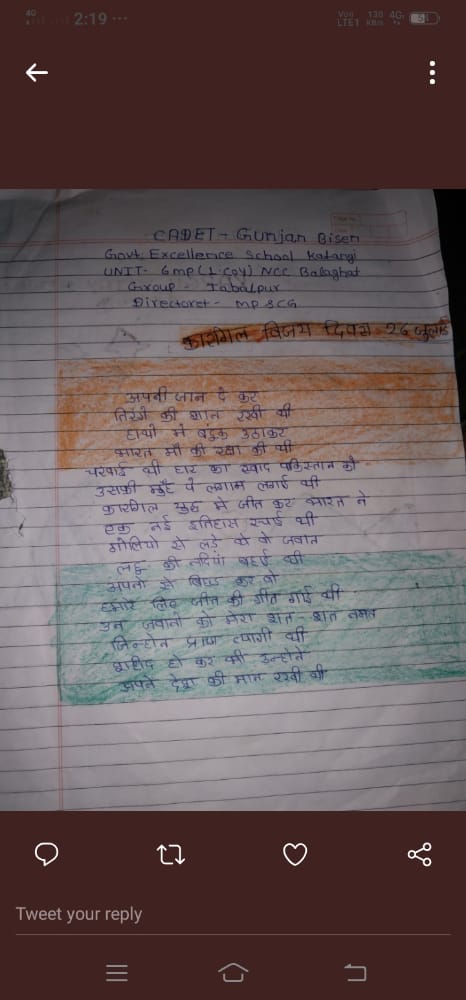 4G
2:19 ...
Voo LTE1 130 KB/s 4G 51
CADET - Gunjan Bisen
Govt, Excellence School Katangi
UNIT- 6mp (1.coy) NCC Balaghat
Group - Jabalpur
Directoret - MP & CG
कारगिल विजय दिवस 26 जुलाई
अपनी जान दे कर
तिरंगे की शान रखी थी
हाथो मे बंदुक उठाकर
भारत माँ की रक्षा की थी
चरवाई थी हार का स्वाद पाकिस्तान को
उसकी मुँह पे लगाम लगाई थी
कारगिल युद्ध मे जीत कर भारत ने
एक नई इतिहास रचाई थी
गोलियो से लड़े थे वो जवान
लहू की नदियाँ बहाई थी
अपनो से बिछड़ कर वो
हमारे लिए जीत की गीत गाई थी
उन जवानो को मेरा शत-शत नमन
जिन्होने प्राण त्यागी थी
शहिद हो कर भी उन्होने
अपने देश की मान रखी थी
Tweet your reply